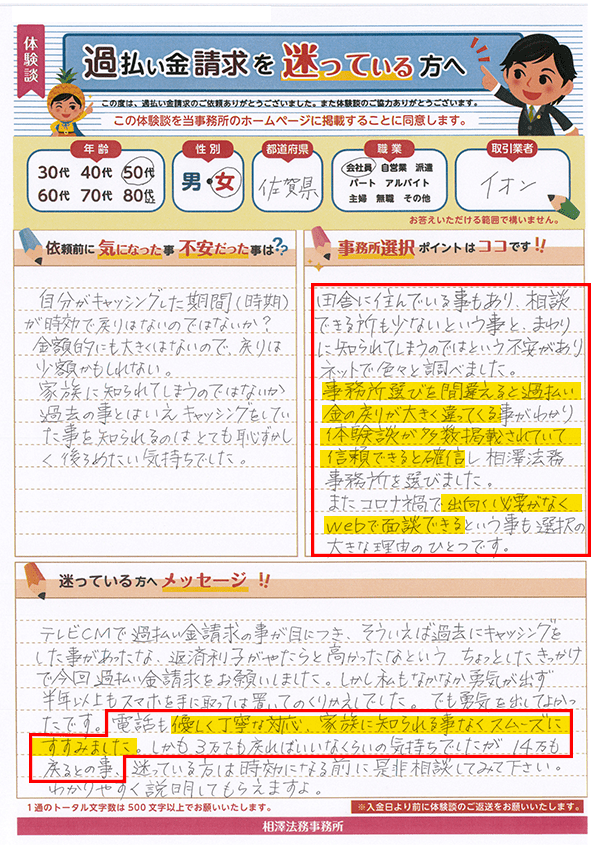 体験談
過払い金請求を迷っている方へ
この度は、過払い金請求のご依頼ありがとうございました。また体験談のご協力ありがとうございます。
この体験談を当事務所のホームページに掲載することに同意します。
年齢
30代 40代 50代
60代 70代 80代以上
性別
男・女
都道府県
佐賀県
職業
会社員 自営業 派遣
パート アルバイト
主婦 無職 その他
取引業者
イオン
お答えいただける範囲で構いません。
依頼前に気になった事 不安だった事は??
自分がキャッシングした期間(時期)
が時効で戻りはないのではないか?
金額的にも大きくはないので、戻りは
少額かもしれない。
家族に知られてしまうのではないか
過去の事とはいえキャッシングをしてい
た事を知られるのはとても恥ずかし
く後ろめたい気持ちでした。
事務所選択ポイントはココです!!
田舎に住んでいる事もあり、相談
できる所も少ないという事と、まわり
に知られてしまうのではという不安があり
ネットで色々と調べました。
事務所選びを間違えると過払い
金の戻りが大きく違ってくる事がわかり
体験談が多数掲載されていて
信頼できると確信し相澤法務
事務所を選びました。
またコロナ禍で出向く必要がなく
webで面談できるという事も選択の
大きな理由のひとつです。
迷っている方へメッセージ!!
テレビCMで過払い金請求の事が目につき、そういえば過去にキャッシングを
した事があったな、返済利子がやたらと高かったなという ちょっとしたきっかけ
で今回過払い金請求をお願いしました。しかし私もなかなか勇気が出ず
半年以上もスマホを手に取っては置いてのくりかえしでした。でも勇気を出してよかっ
たです。電話も優しく丁寧な対応、家族に知られる事なくスムーズに
すすみました。しかも3万でも戻ればいいなくらいの気持ちでしたが、14万も
戻るとの事、迷っている方は時効になる前に是非相談してみて下さい。
わかりやすく説明してもらえますよ。
1通のトータル文字数は500文字以上でお願いいたします。
※入金日より前に体験談のご返送をお願いいたします。
相澤法務事務所